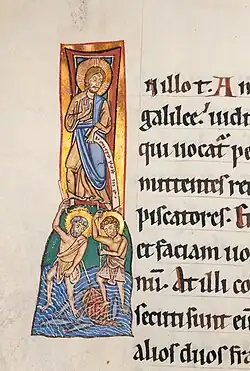 n illo t. Am
galilee. uidit
qui uocat pe
mittentes re
piscatores. Et
et faciam uo
nū. At illi co
secuti sunt eū
alios duos fra